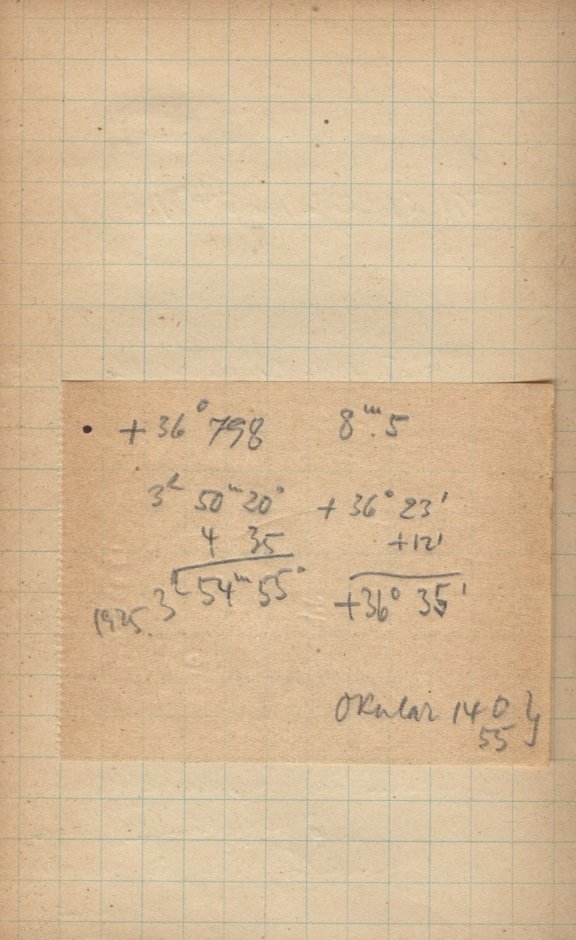 +36° 798 8ᵐ.5
3ʰ 50ᵐ 20ˢ +36° 23'
4 35 +12'
1925. 3ʰ 54ᵐ 55ˢ +36° 35'
Okular 14 0 }
55